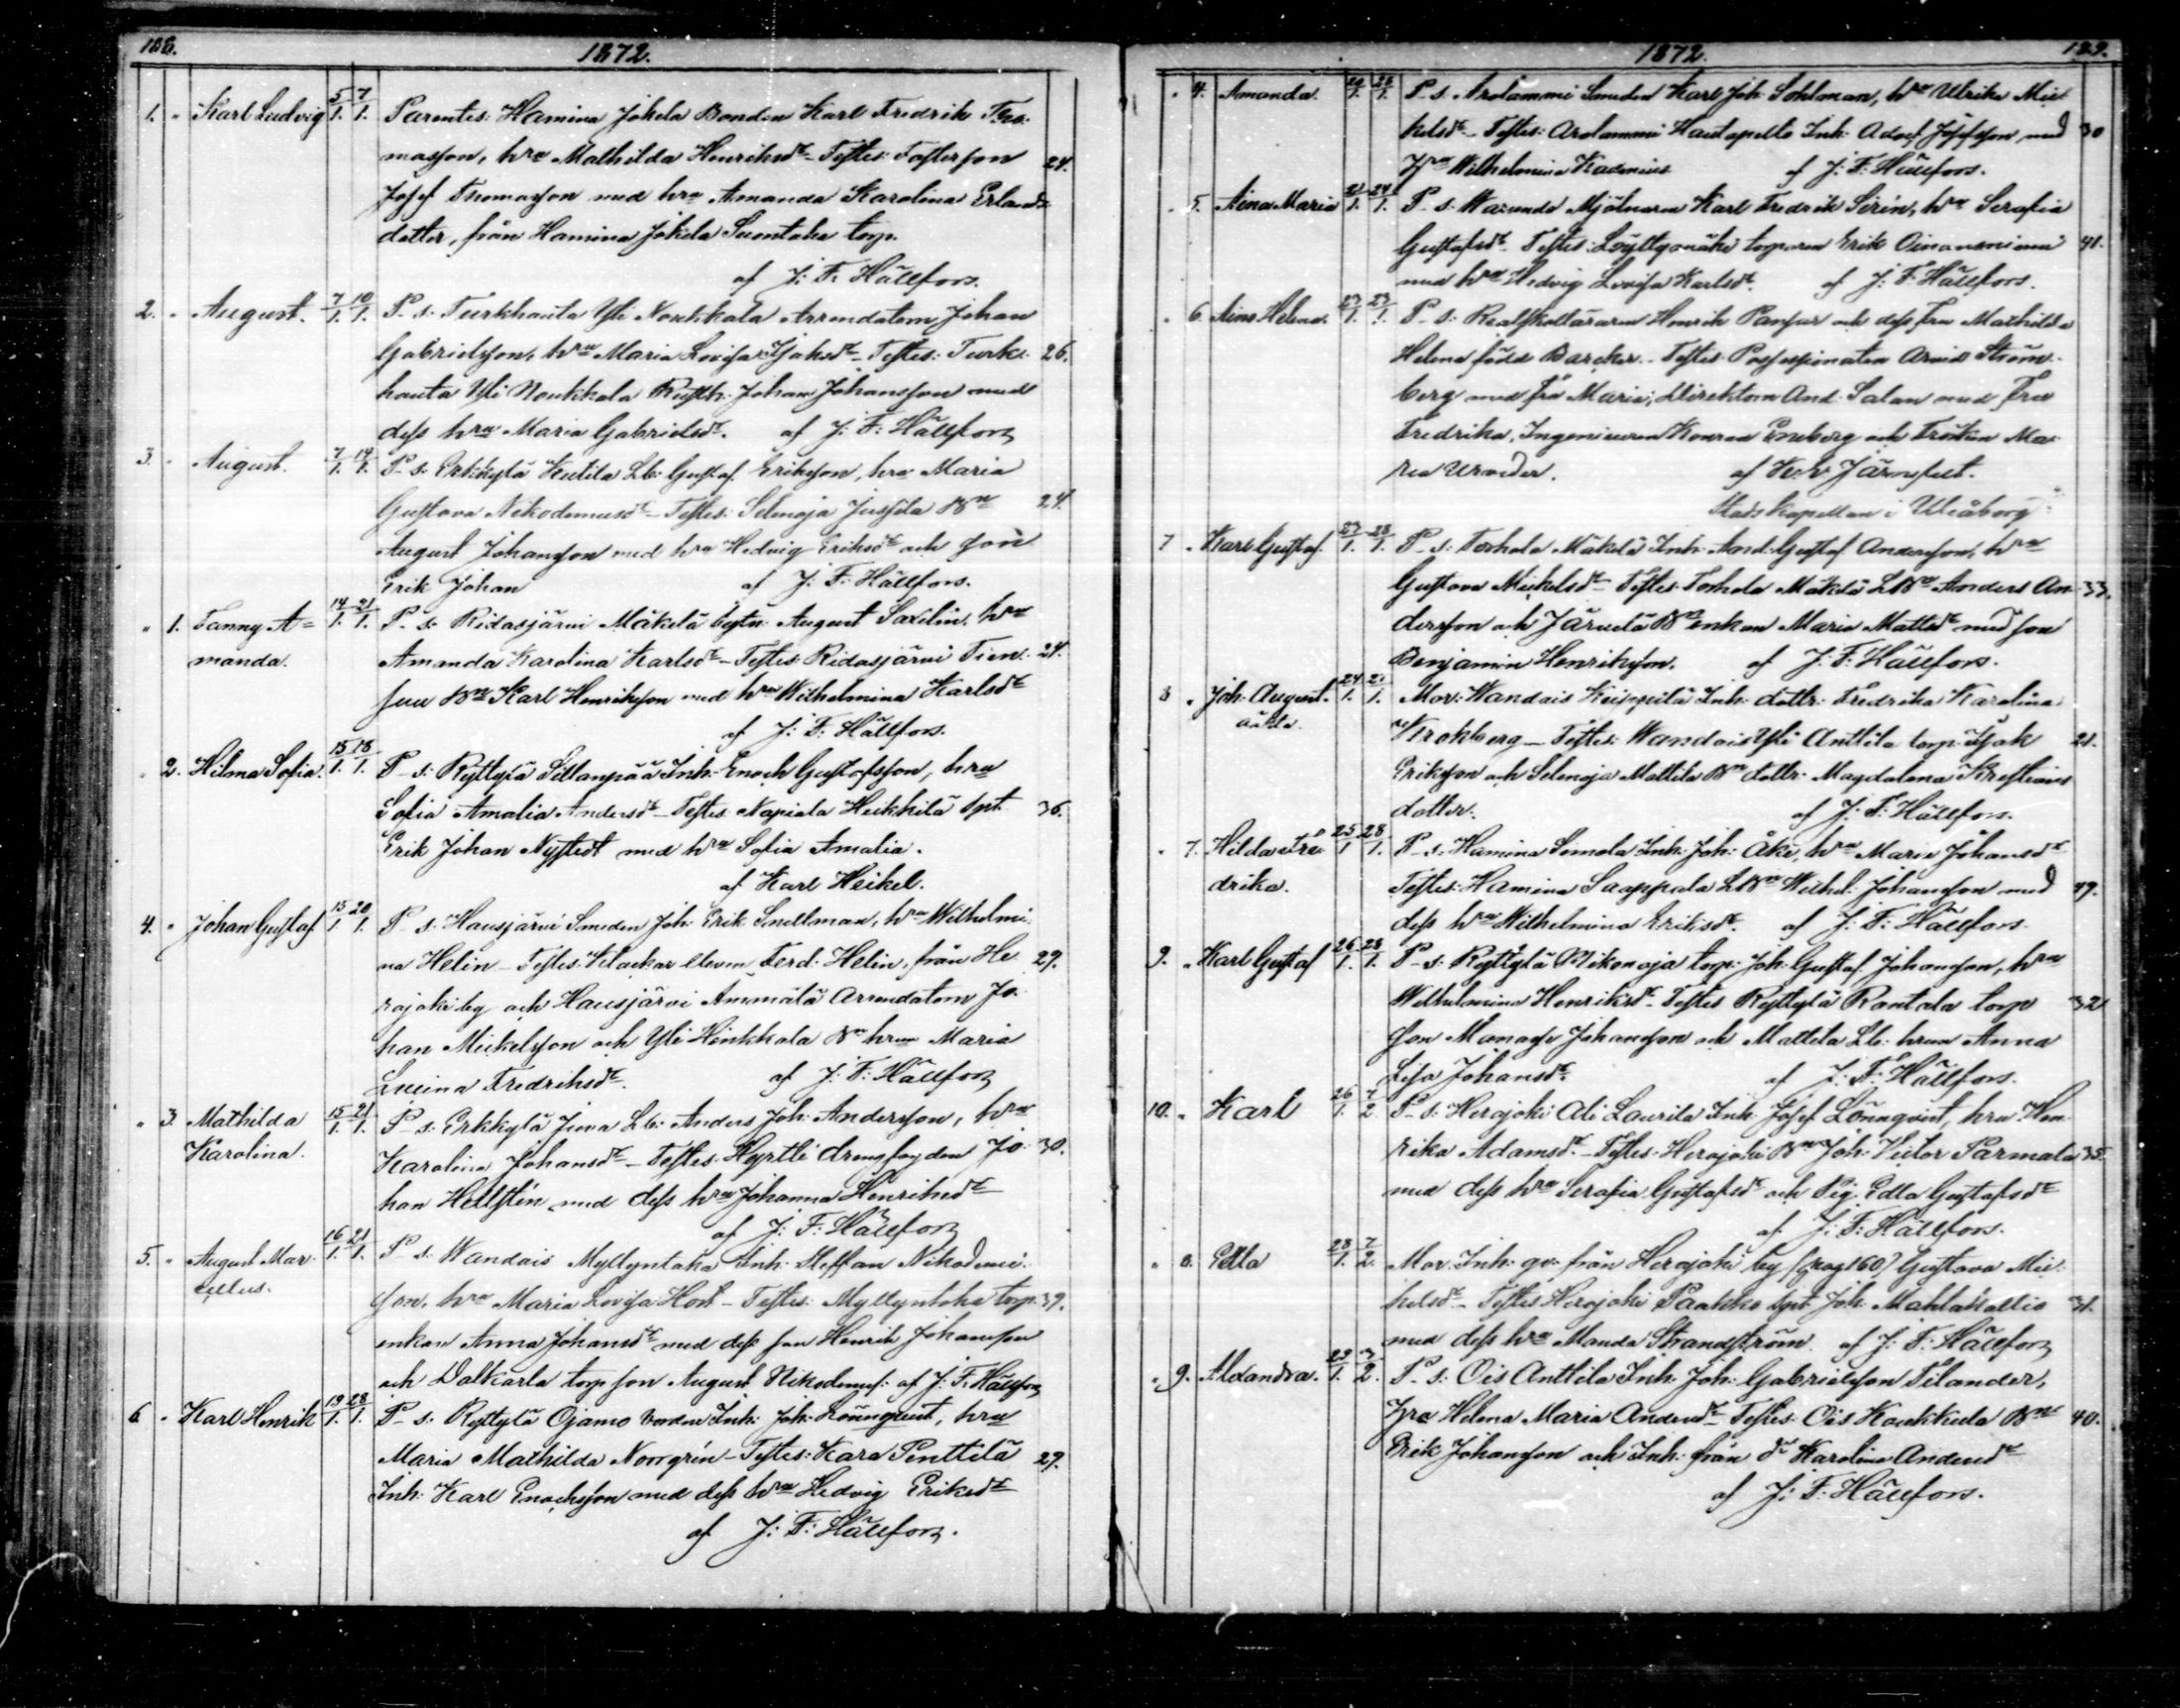 188.
1872.
1. " Karl Ludvig 5/1. 7/1. Parentes: Hamina Jokela Bonden Karl Fredrik Tho-
masson, hru Mathilda Henriksdr - Testes: Fostersson 24.
Josef Thomasson med hru Amanda Karolina Erlands-
dotter, från Hamina Jokela Suontaka torp.
af J: F: Hällfors.
2. " August. 7/1. 10/1. P. s: Turkhauta Yli Noukkala Arrendatorn Johan
Gabrielsson, hru Maria Lovisa Isaksdr - Testes: Turk- 26.
hauta Yli Noukkala Rusth. Johan Johansson med
dess hru Maria Gabrielsdr. af J: F: Hällfors
3. " August. 7/1. 14/1. P. s: Erkkylä Kutila Lb: Gustaf Eriksson, hru Maria
Gustava Nikodemusdr - Testes: Selenoja Jussila Bn 24.
August Johansson med hru Hedvig Eriksdr och son
Erik Johan af J: F: Hällfors.
" 1. Fanny A= 14/1. 21/1. P. s: Ridasjärvi Mäkelä bytn: August Saxelin, hru
manda. Amanda Karolina Karlsdr - Testes: Ridasjärvi Tien- 24.
suu Bn Karl Henriksson med hru Wilhelmina Karlsdr
af J: F: Hällfors.
" 2. Hilma Sofia. 15/1. 18/1. P. s: Ryttylä Sillanpää Inh: Enoch Gustafsson, hru
Sofia Amalia Andersdr - Testes: Napiala Heikkilä spt. 36.
Erik Johan Nystedt med hru Sofia Amalia.
af Karl Heikel.
4. " Johan Gustaf 15/1 20/1. P. s: Hausjärvi Smeden Joh: Erik Snellman, hru Wilhelmi-
na Helin - Testes: Klockar eleven Ferd: Helin, från He- 29.
rajoki by och Hausjärvi Ammälä Arrendatorn Jo-
han Mickelsson och Yli Hinkkala Bn hrun Maria
Lucina Fredriksdr. af J: F: Hällfors
" 3. Mathilda 15/1. 21/1. P. s: Erkkylä Juva Lb: Anders Joh: Andersson, hru
Karolina. Karolina Johansdr - Testes: Hyrtti drengfogden Jo- 30.
han Hellstén med dess hru Johanna Henriksdr
af J: F: Hällfors
5. " August Mar- 16/1. 21/1. P. s: Wandais Myllyntaka Inh: Steffan Nikodemi-
cellus. son, hru Maria Lovisa Host - Testes: Myllyntaka torp. 39.
enkan Anna Johansdr med dess son Henrik Johansson
och Dalkarla torp son August Nikodemuss: af J: F: Hällfors
6 " Karl Henrik 19/1. 28/1. P. s: Ryttylä Ojamo boende Inh: Joh: Lönnqvist, hru
Maria Mathilda Norrgrén - Testes: Kara Penttilä 29.
Inh: Karl Enochsson med dess hru Hedvig Eriksdr
af J: F: Hällfors.
1872. 189.
" 4. Amanda. 20/1. 28/1. P. s. Arolammi Smeden Karl Joh: Sohlman, hru Ulrika Mic-
kelsdr - Testes: Arolammi Hautapelto Inh: Adolf Josefsson med 30
Hru Wilhelmina Kadenius af J: F: Hällfors.
" 5. Aina Maria 21/1. 24/1. P. s. Warunda Mjölnaren Karl Fredrik Sirén, hru Serafia
Gustafsdr - Testes: Löyttymäki torparen Erik Oinaanniemi 41.
med hru Hedvig Lovisa Karlsdr. af J: F: Hällfors.
" 6. Aino Helena. 23/1. 23/1. P. s: Realskolläraren Henrik Pansar och dess fru Mathilda
Helena född Barcker. - Testes: Possessionaten Arvid Ström-
berg med fru Maria; Direktorn And: Salan med Fru
Fredrika, Ingenieuren Konrad Eneberg och Fröken Ma-
ria Uroeder. af K: v Järnefelt.
Stads Kapellan i Uleåborg.
7 " Karl Gustaf. 23/1. 28/1. P. s: Torhola Mäkelä Inh: And: Gustaf Andersson, hru
Gustava Mickelsdr - Testes: Torhola Mäkelä LBn Anders An- 33.
dersson och Järvelä Bn enkan Maria Mattsdr med son
Benjamin Henriksson. af J: F: Hällfors.
8 " Joh: August. 24/1. 25/1. Mor: Wandais Keippilä Inh: dottr: Fredrika Karolina
oäkta. Krokberg - Testes: Wandais Yli Anttila torp: Isak 21.
Eriksson och Selenoja Mattila Bn dottr: Magdalena Kristians
dotter. af J: F: Hällfors.
" 7. Hilda Fre- 25/1 28/1. P. s: Hamina Simola Inh: Joh: Åke, hru Maria Johansdr
drika. Testes: Hamina Saappala LBn Wilhel: Johansson med 49.
dess hru Wilhelmina Eriksdr. af J: F: Hällfors.
9. " Karl Gustaf 26/1. 28/1. P. s: Ryttylä Nikonoja torp: Joh: Gustaf Johansson, hru
Wilhelmina Henriksdr - Testes: Ryttylä Rantala torp 32
son Manasse Johansson och Mattila Lb: hrun Anna
Lisa Johansdr. af J: F: Hällfors.
10. " Karl 26/1. 7/2 P. s: Herajoki Ali Laurila Inh: Josef Lönnqvist, hru Hen-
rika Adamsdr - Testes: Herajoki Bn Joh: Victor Parmala 35.
med dess hru Serafia Gustafsdr och Pig. Edla Gustafsdr
af J: F: Hällfors.
" 8. Edla 28/1. 7/2. Mor: Inh: qv: från Herajoki by (pag 160) Gustava Mic-
kelsdr - Testes: Herajoki Paahko spt. Joh: Mahlakallio 31.
med dess hru Manda Strandström. af J: F: Hällfors
" 9. Alexandra. 29/1. 3/2. P. s: Ois Anttila Inh: Joh: Gabrielsson Tilander,
Hru Helena Maria Andersdr - Testes: Ois Koukkula Bn 40.
Erik Johansson och Inh: från do Karolina Andersdr
af J: F: Hällfors.